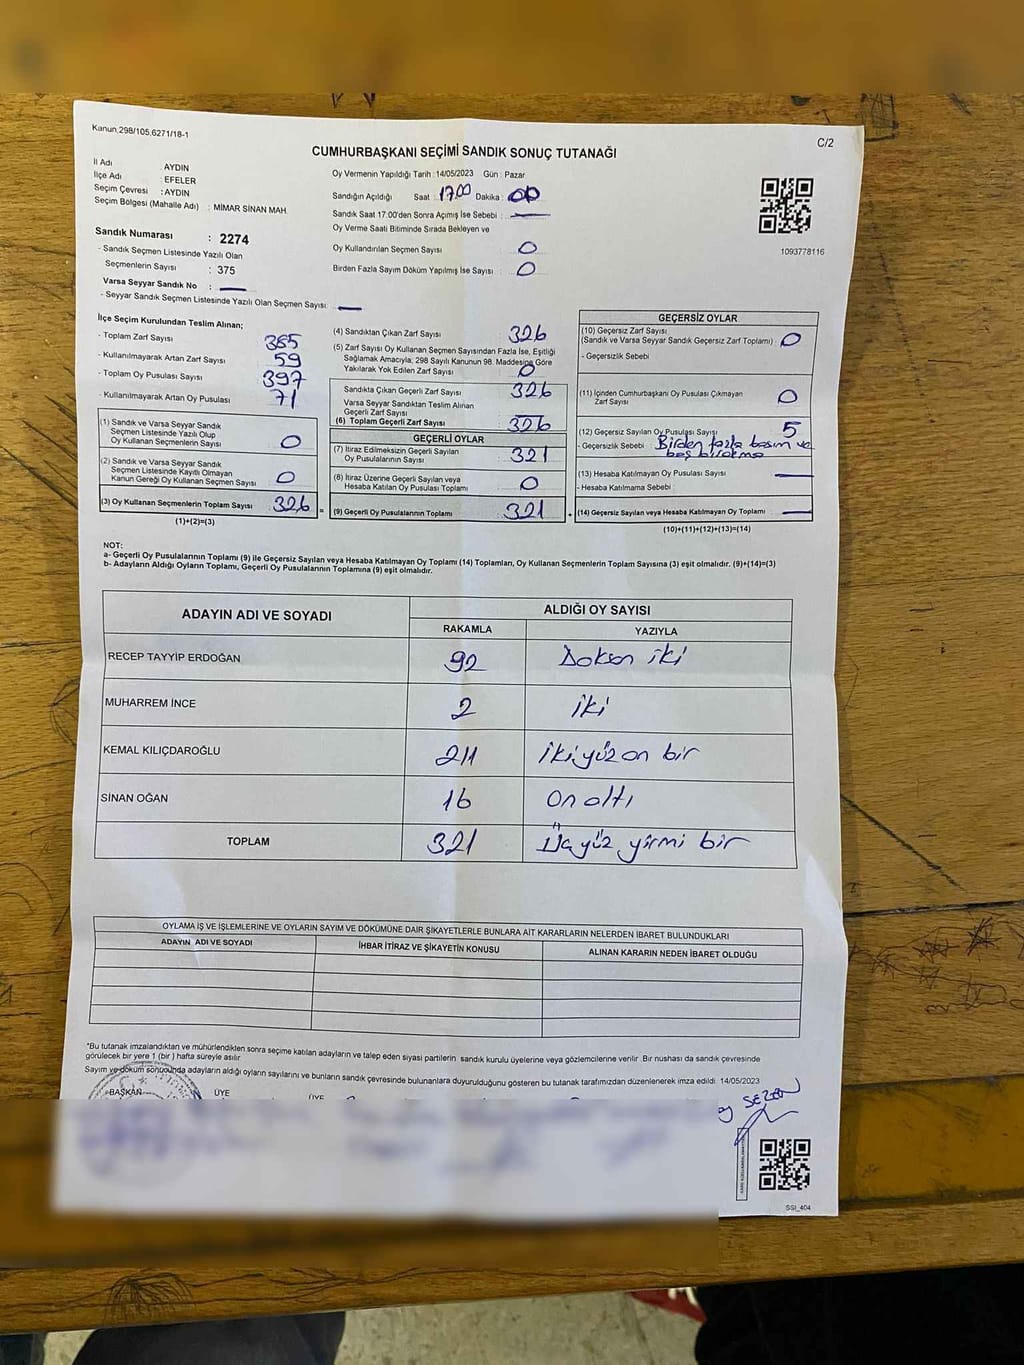 Kanun.298/105,6271/18-1
C/2
CUMHURBAŞKANI SEÇİMİ SANDIK SONUÇ TUTANAĞI
İl Adı : AYDIN
İlçe Adı : EFELER
Seçim Çevresi : AYDIN
Seçim Bölgesi (Mahalle Adı) : MİMAR SİNAN MAH.
Sandık Numarası : 2274
- Sandık Seçmen Listesinde Yazılı Olan
Seçmenlerin Sayısı : 375
Varsa Seyyar Sandık No :
- Seyyar Sandık Seçmen Listesinde Yazılı Olan Seçmen Sayısı:
Oy Vermenin Yapıldığı Tarih : 14/05/2023 Gün : Pazar
Sandığın Açıldığı Saat : 17.00 Dakika : 00
Sandık Saat 17:00'den Sonra Açımış İse Sebebi :
Oy Verme Saati Bitiminde Sırada Bekleyen ve
Oy Kullandırılan Seçmen Sayısı : 0
Birden Fazla Sayım Döküm Yapılmış İse Sayısı : 0
1093778116
İlçe Seçim Kurulundan Teslim Alınan;
- Toplam Zarf Sayısı : 385
- Kullanılmayarak Artan Zarf Sayısı : 59
- Toplam Oy Pusulası Sayısı : 397
- Kullanılmayarak Artan Oy Pusulası : 71
(1) Sandık ve Varsa Seyyar Sandık
Seçmen Listesinde Yazılı Olup
Oy Kullanan Seçmenlerin Sayısı : 0
(2) Sandık ve Varsa Seyyar Sandık
Seçmen Listesinde Kayıtlı Olmayan
Kanun Gereği Oy Kullanan Seçmen Sayısı : 0
(3) Oy Kullanan Seçmenlerin Toplam Sayısı : 326 =
(1)+(2)=(3)
(4) Sandıktan Çıkan Zarf Sayısı : 326
(5) Zarf Sayısı Oy Kullanan Seçmen Sayısından Fazla İse, Eşitliği
Sağlamak Amacıyla; 298 Sayılı Kanunun 98. Maddesine Göre
Yakılarak Yok Edilen Zarf Sayısı : 0
Sandıkta Çıkan Geçerli Zarf Sayısı : 326
Varsa Seyyar Sandıktan Teslim Alınan
Geçerli Zarf Sayısı :
(6) Toplam Geçerli Zarf Sayısı : 326
GEÇERLİ OYLAR
(7) İtiraz Edilmeksizin Geçerli Sayılan
Oy Pusulalarının Sayısı : 321
(8) İtiraz Üzerine Geçerli Sayılan veya
Hesaba Katılan Oy Pusulası Toplamı : 0
(9) Geçerli Oy Pusulalarının Toplamı : 321 +
GEÇERSİZ OYLAR
(10) Geçersiz Zarf Sayısı
(Sandık ve Varsa Seyyar Sandık Geçersiz Zarf Toplamı) : 0
- Geçersizlik Sebebi :
(11) İçinden Cumhurbaşkanı Oy Pusulası Çıkmayan
Zarf Sayısı : 0
(12) Geçersiz Sayılan Oy Pusulası Sayısı : 5
- Geçersizlik Sebebi : Birden fazla basım ve
boş bırakma
(13) Hesaba Katılmayan Oy Pusulası Sayısı :
- Hesaba Katılmama Sebebi :
(14) Geçersiz Sayılan veya Hesaba Katılmayan Oy Toplamı :
(10)+(11)+(12)+(13)=(14)
NOT:
a- Geçerli Oy Pusulalarının Toplamı (9) ile Geçersiz Sayılan veya Hesaba Katılmayan Oy Toplamı (14) Toplamları, Oy Kullanan Seçmenlerin Toplam Sayısına (3) eşit olmalıdır. (9)+(14)=(3)
b- Adayların Aldığı Oyların Toplamı, Geçerli Oy Pusulalarının Toplamına (9) eşit olmalıdır.
ADAYIN ADI VE SOYADI ALDIĞI OY SAYISI
RAKAMLA YAZIYLA
RECEP TAYYİP ERDOĞAN 92 Doksan iki
MUHARREM İNCE 2 iki
KEMAL KILIÇDAROĞLU 211 İkiyüz on bir
SİNAN OĞAN 16 On altı
TOPLAM 321 Üçyüz yirmi bir
OYLAMA İŞ VE İŞLEMLERİNE VE OYLARIN SAYIM VE DÖKÜMÜNE DAİR ŞİKAYETLERLE BUNLARA AİT KARARLARIN NELERDEN İBARET BULUNDUKLARI
ADAYIN ADI VE SOYADI İHBAR İTİRAZ VE ŞİKAYETİN KONUSU ALINAN KARARIN NEDEN İBARET OLDUĞU
*Bu tutanak imzalandıktan ve mühürlendikten sonra seçime katılan adayların ve talep eden siyasi partilerin sandık kurulu üyelerine veya gözlemcilerine verilir. Bir nüshası da sandık çevresinde
görülecek bir yere 1 (bir) hafta süreyle asılır.
Sayım ve döküm sonucunda adayların aldığı oyların sayılarını ve bunların sandık çevresinde bulunanlara duyurulduğunu gösteren bu tutanak tarafımızdan düzenlenerek imza edildi. 14/05/2023
BAŞKAN ÜYE ÜYE
SEZEN
SSI_404